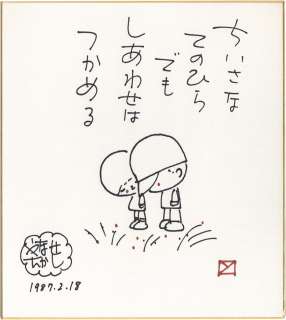 ちいさな
てのひら
でも
しあわせは
つかめる
やなせ
たかし
1987.2.18